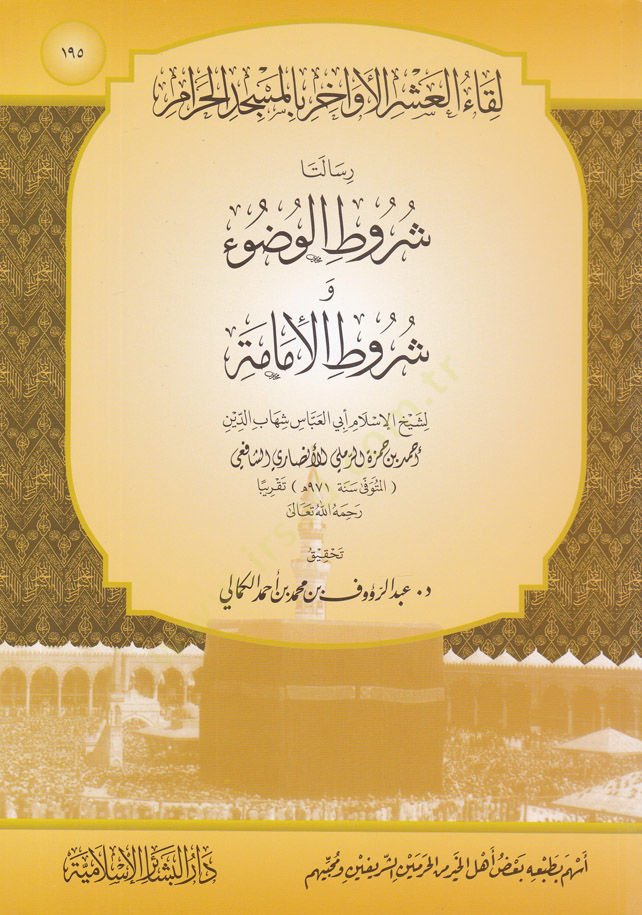 ١٩٥
لِقَاءُ العَشْرِ الأَوَاخِرِ بِالمَسْجِدِ الحَرَامِ
رِسَالَتَا
شُرُوطِ الوُضُوءِ
وَ
شُرُوطِ الإِمَامَةِ
لِشَيْخِ الإِسْلَامِ أَبِي العَبَّاسِ شِهَابِ الدِّينِ
أَحمد بن حمزة الرملي الأنصاري الشافعي
( المُتَوَفَّى سَنَة ٩٧١هـ ) تَقْرِيبًا
رَحِمَهُ اللهُ تَعَالَى
تَحْقِيقُ
د. عبد الرؤوف بن محمد بن أحمد الكمالي
أَسْهَمَ بِطَبْعِهِ بَعْضُ أَهْلِ الخَيْرِ مِنَ الحَرَمَيْنِ الشَّرِيفَيْنِ وَمُحِبِّيهِم
دَارُ البَشَائِرِ الإِسْلَامِيَّة